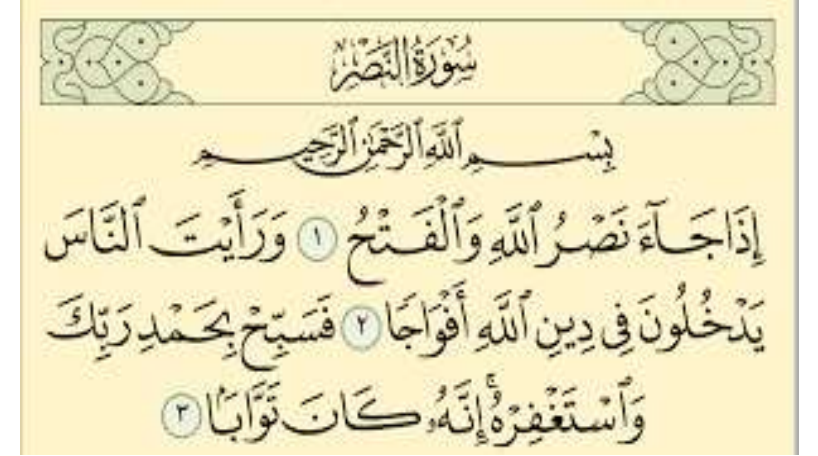 سُورَةُ النَّصْرِ
بِسْمِ ٱللَّهِ ٱلرَّحْمَٰنِ ٱلرَّحِيمِ
إِذَا جَآءَ نَصْرُ ٱللَّهِ وَٱلْفَتْحُ ١ وَرَأَيْتَ ٱلنَّاسَ
يَدْخُلُونَ فِى دِينِ ٱللَّهِ أَفْوَاجًا ٢ فَسَبِّحْ بِحَمْدِ رَبِّكَ
وَٱسْتَغْفِرْهُۚ إِنَّهُۥ كَانَ تَوَّابَۢا ٣